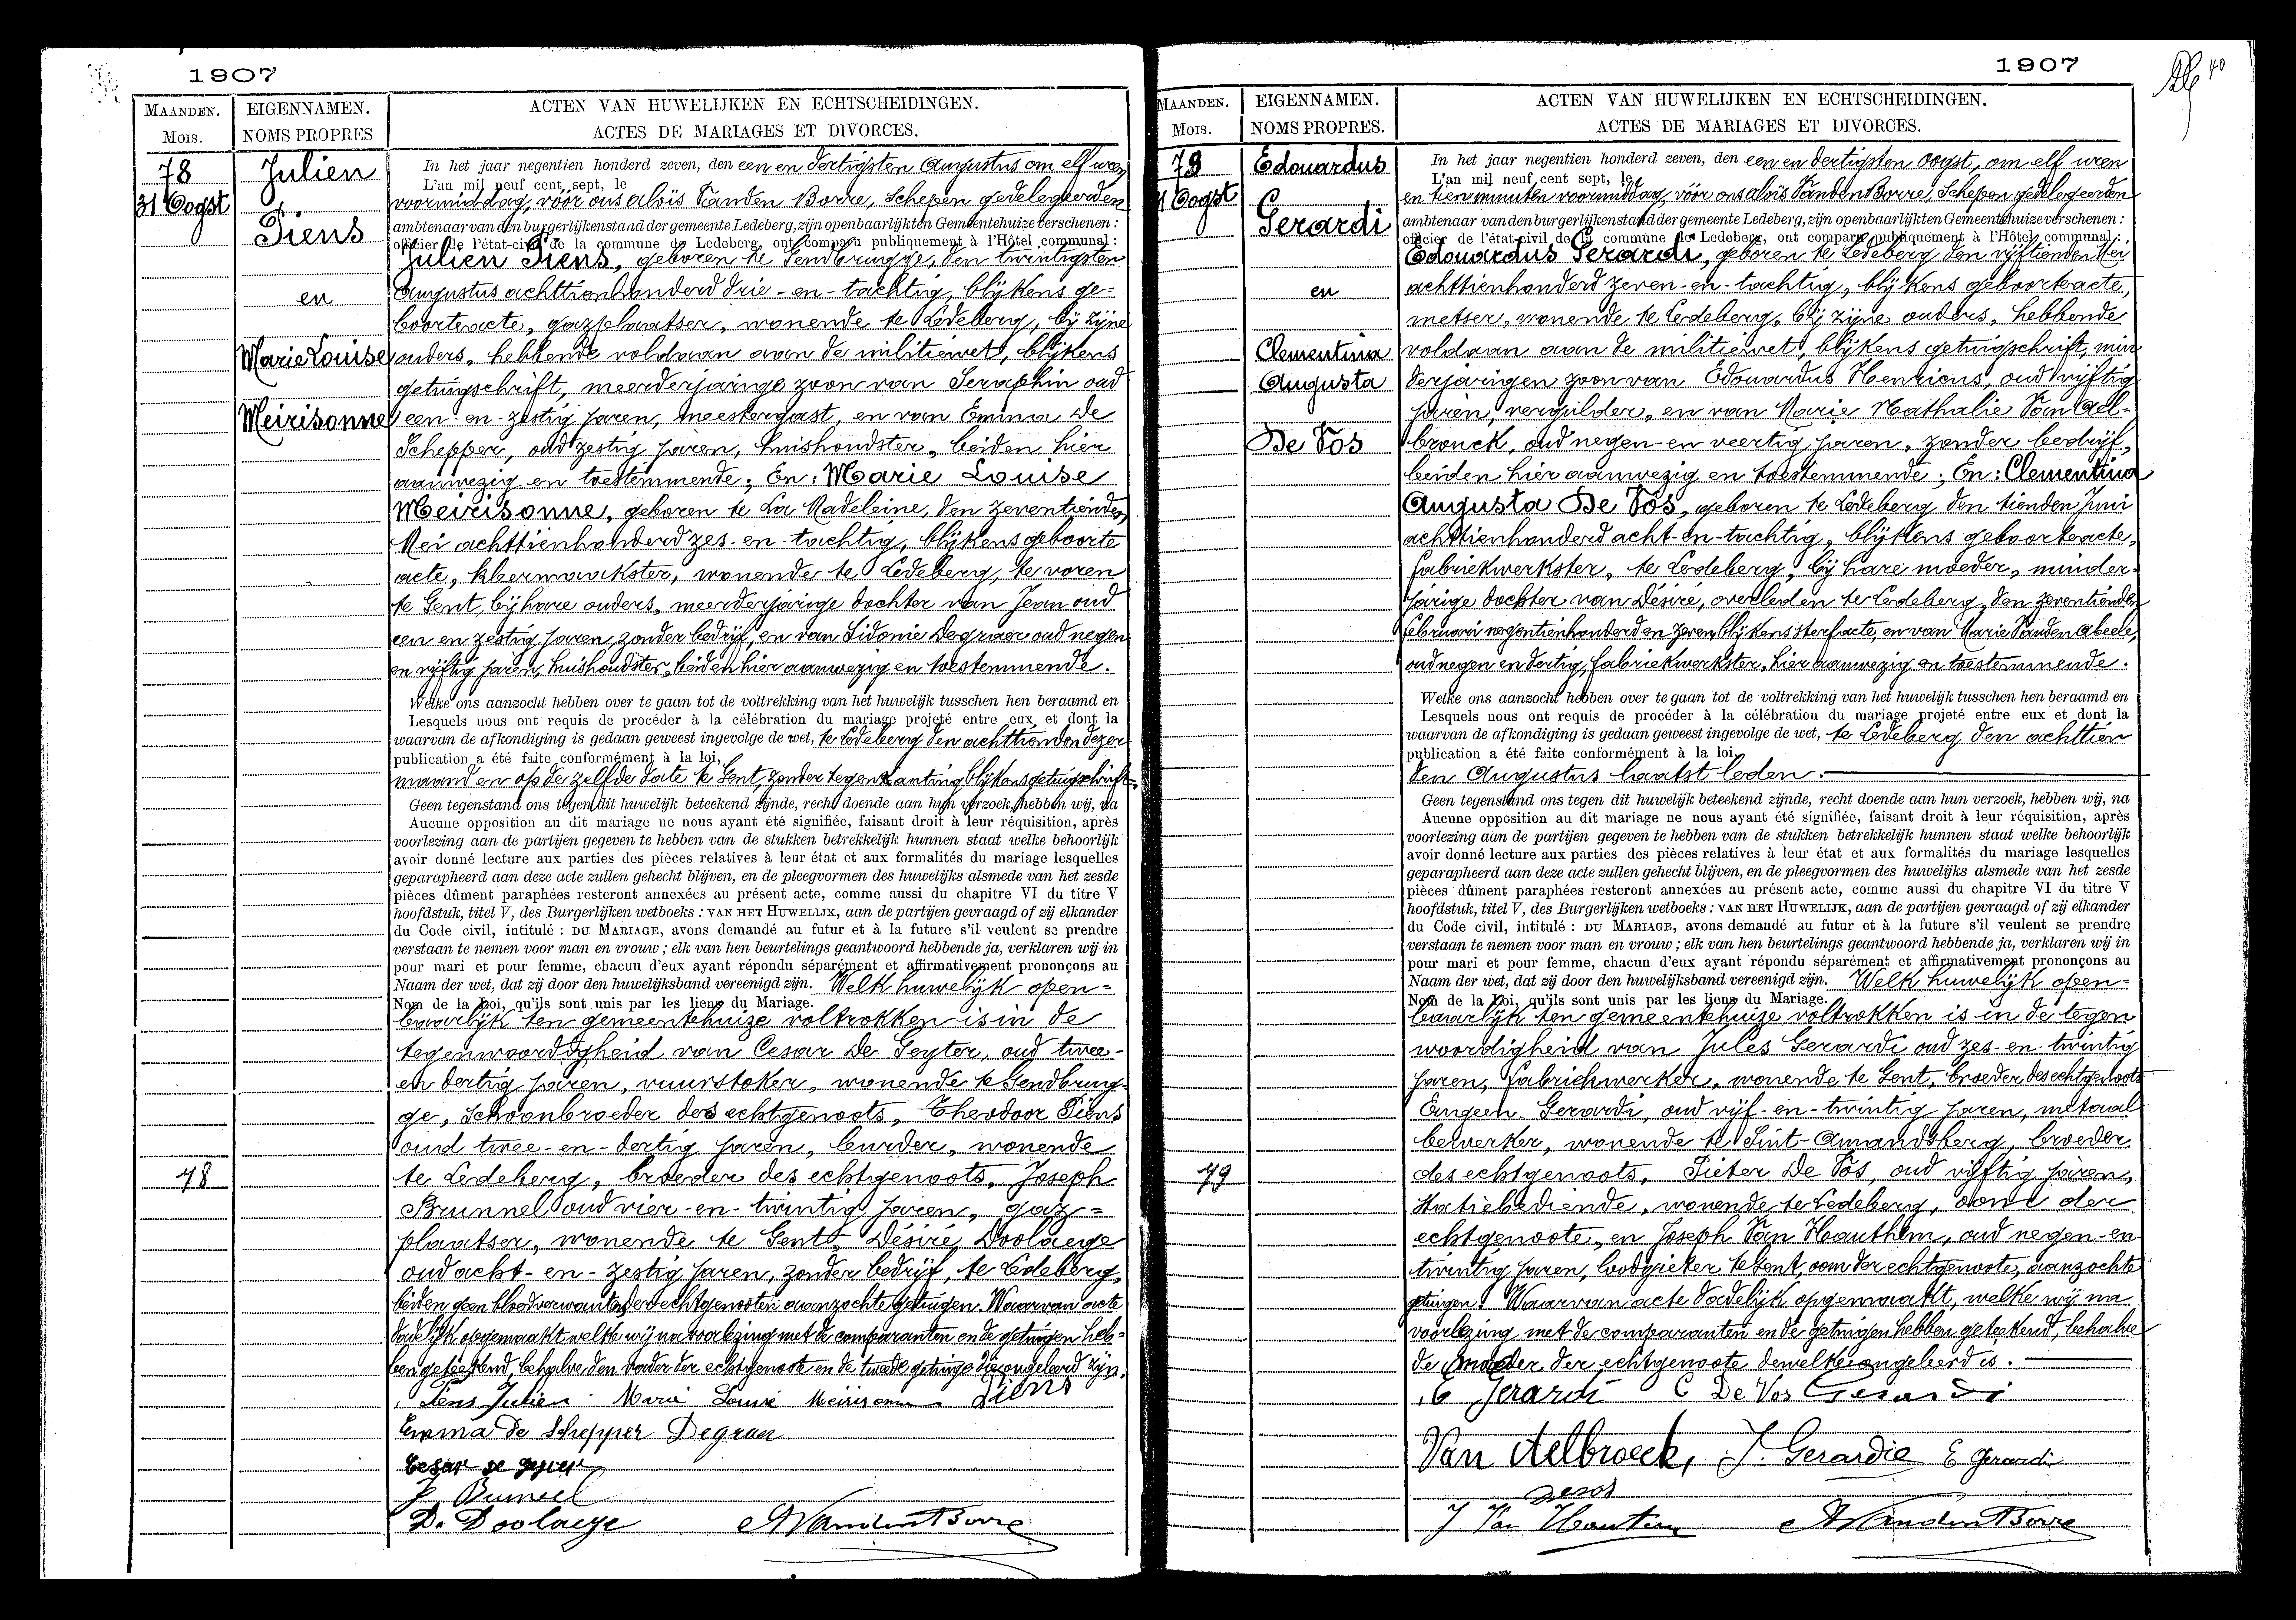 1907
MAANDEN.
Mois.
EIGENNAMEN.
NOMS PROPRES
ACTEN VAN HUWELIJKEN EN ECHTSCHEIDINGEN.
ACTES DE MARIAGES ET DIVORCES.
78
31 Oogst
Julien
Piens
en
Marie Louise
Meirisonne
78
In het jaar negentien honderd zeven, den een en dertigsten Augustus om elf uren
L'an mil neuf cent sept, le
voormiddag, vóór ons Aloïs Vanden Borre, Schepen gedelegeerden
ambtenaar van den burgerlijken stand der gemeente Ledeberg, zijn openbaarlijk ten Gemeentehuize verschenen :
officier de l'état-civil de la commune de Ledeberg, ont comparu publiquement à l'Hôtel communal :
Julien Piens, geboren te Gendbrugge, den twintigsten
Augustus achttienhonderd drie-en-tachtig, blijkens ge=
boorteacte, gazplaatser, wonende te Ledeberg, bij zijne
ouders, hebbende voldaan aan de militiewet, blijkens
getuigschrift, meerderjarige zoon van Seraphin oud
een-en-zestig jaren, meestergast, en van Emma De
Schepper, oud zestig jaren, huishoudster, beiden hier
aanwezig en toestemmende; En: Marie Louise
Meirisonne, geboren te La Madeleine, den zeventienden
Mei achttienhonderd zes-en-tachtig, blijkens geboorte
acte, kleermaakster, wonende te Ledeberg, te voren
te Gent, bij hare ouders, meerderjarige dochter van Jean oud
een en zestig jaren, zonder bedrijf, en van Sidonie Degraer oud negen
en vijftig jaren, huishoudster, beiden hier aanwezig en toestemmende.
Welke ons aanzocht hebben over te gaan tot de voltrekking van het huwelijk tusschen hen beraamd en
Lesquels nous ont requis de procéder à la célébration du mariage projeté entre eux et dont la
waarvan de afkondiging is gedaan geweest ingevolge de wet, te Ledeberg den achttienden dezer
publication a été faite conformément à la loi,
maand en op de zelfde date te Gent, zonder tegenkanting blijkens getuigschrift.
Geen tegenstand ons tegen dit huwelijk beteekend zijnde, recht doende aan hun verzoek, hebben wij, na
Aucune opposition au dit mariage ne nous ayant été signifiée, faisant droit à leur réquisition, après
voorlezing aan de partijen gegeven te hebben van de stukken betrekkelijk hunnen staat welke behoorlijk
avoir donné lecture aux parties des pièces relatives à leur état et aux formalités du mariage lesquelles
geparapheerd aan deze acte zullen gehecht blijven, en de pleegvormen des huwelijks alsmede van het zesde
pièces dûment paraphées resteront annexées au présent acte, comme aussi du chapitre VI du titre V
hoofdstuk, titel V, des Burgerlijken wetboeks : VAN HET HUWELIJK, aan de partijen gevraagd of zij elkander
du Code civil, intitulé : DU MARIAGE, avons demandé au futur et à la future s'il veulent se prendre
verstaan te nemen voor man en vrouw ; elk van hen beurtelings geantwoord hebbende ja, verklaren wij in
pour mari et pour femme, chacuu d'eux ayant répondu séparément et affirmativement prononçons au
Naam der wet, dat zij door den huwelijksband vereenigd zijn. Welk huwelijk open=
Nom de la Loi, qu'ils sont unis par les liens du Mariage.
baarlijk ten gemeentehuize voltrokken is in de
tegenwoordigheid van Cesar De Geyter, oud twee-
en dertig jaren, vuurstoker, wonende te Gendbrug-
ge, schoonbroeder des echtgenoots, Theodoor Piens
oud twee-en-dertig jaren, burder, wonende
te Ledeberg, broeder des echtgenoots, Joseph
Brunnel oud vier-en-twintig jaren, gaz=
plaatser, wonende te Gent, Désiré Doolaege
oud acht-en-zestig jaren, zonder bedrijf, te Ledeberg,
beiden geen bloedverwanten der echtgenooten aanzochte getuigen. Waarvan acte
dadelijk opgemaakt welke wij na voorlezing met de comparanten en de getuigen heb=
ben geteekend, behalve den vader der echtgenoote en de tweede getuige die ongeleerd zijn.
Piens Julien Marie Louise Meirisonne Piens
Emma De Schepper Degraer
Cesar de geyter
J Bruneel
D. Doolaege A VandenBorre
1907
40
MAANDEN.
Mois.
EIGENNAMEN.
NOMS PROPRES.
ACTEN VAN HUWELIJKEN EN ECHTSCHEIDINGEN.
ACTES DE MARIAGES ET DIVORCES.
79
31 Oogst
Edouardus
Gerardi
en
Clementina
Augusta
De Vos
79
In het jaar negentien honderd zeven, den een en dertigsten Oogst, om elf uren
L'an mil neuf cent sept, le
en tien minuten voormiddag, vóór ons Aloïs Vanden Borre, Schepen gedelegeerden
ambtenaar van den burgerlijken stand der gemeente Ledeberg, zijn openbaarlijk ten Gemeentehuize verschenen :
officier de l'état-civil de la commune de Ledeberg, ont comparu publiquement à l'Hôtel communal :
Edouardus Gerardi, geboren te Ledeberg den vijftienden Mei
achttienhonderd zeven-en-tachtig, blijkens geboorteacte,
metser, wonende te Ledeberg, bij zijne ouders, hebbende
voldaan aan de militiewet, blijkens getuigschrift, min
derjarigen zoon van Edouardus Henricus, oud vijftig
jaren, vergulder, en van Marie Nathalie Van Ael-
brouck, oud negen-en veertig jaren, zonder bedrijf,
beiden hier aanwezig en toestemmende; En: Clementina
Augusta De Vos, geboren te Ledeberg den tienden Juni
achttienhonderd acht-en-tachtig, blijkens geboorteacte,
fabriekwerkster, te Ledeberg, bij hare moeder, minder-
jarige dochter van Désiré, overleden te Ledeberg, den zeventienden
februari negentienhonderd en zeven, blijkens sterfacte, en van Marie Vanden Abeele,
oud negen en dertig, fabriekwerkster, hier aanwezig en toestemmende.
Welke ons aanzocht hebben over te gaan tot de voltrekking van het huwelijk tusschen hen beraamd en
Lesquels nous ont requis de procéder à la célébration du mariage projeté entre eux et dont la
waarvan de afkondiging is gedaan geweest ingevolge de wet, te Ledeberg den achttien
publication a été faite conformément à la loi,
den Augustus laatst leden.
Geen tegenstand ons tegen dit huwelijk beteekend zijnde, recht doende aan hun verzoek, hebben wij, na
Aucune opposition au dit mariage ne nous ayant été signifiée, faisant droit à leur réquisition, après
voorlezing aan de partijen gegeven te hebben van de stukken betrekkelijk hunnen staat welke behoorlijk
avoir donné lecture aux parties des pièces relatives à leur état et aux formalités du mariage lesquelles
geparapheerd aan deze acte zullen gehecht blijven, en de pleegvormen des huwelijks alsmede van het zesde
pièces dûment paraphées resteront annexées au présent acte, comme aussi du chapitre VI du titre V
hoofdstuk, titel V, des Burgerlijken wetboeks : VAN HET HUWELIJK, aan de partijen gevraagd of zij elkander
du Code civil, intitulé : DU MARIAGE, avons demandé au futur et à la future s'il veulent se prendre
verstaan te nemen voor man en vrouw ; elk van hen beurtelings geantwoord hebbende ja, verklaren wij in
pour mari et pour femme, chacun d'eux ayant répondu séparément et affirmativement prononçons au
Naam der wet, dat zij door den huwelijksband vereenigd zijn. Welk huwelijk open=
Nom de la Loi, qu'ils sont unis par les liens du Mariage.
baarlijk ten gemeentehuize voltrokken is in de tegen
woordigheid van Jules Gerardi oud zes-en-twintig
jaren, fabriekwerker, wonende te Gent, broeder des echtgenoots
Eugeen Gerardi, oud vijf-en-twintig jaren, metaal
bewerker, wonende te Sint-Amandsberg, broeder
des echtgenoots, Pieter De Vos, oud vijftig jaren,
statiebediende, wonende te Ledeberg, oom der
echtgenoote, en Joseph Van Hauthem, oud negen-en-
twintig jaren, loodgieter te Gent, oom der echtgenoote, aanzochte
getuigen. Waarvan acte dadelijk opgemaakt, welke wij na
voorlezing met de comparanten en de getuigen hebben geteekend, behalve
de moeder der echtgenoote dewelke ongeleerd is.
E Gerardi C De Vos Gerardi
Van Aelbroeck, J. Gerardie E Gerardi
devos
J Van Hautem A VandenBorre